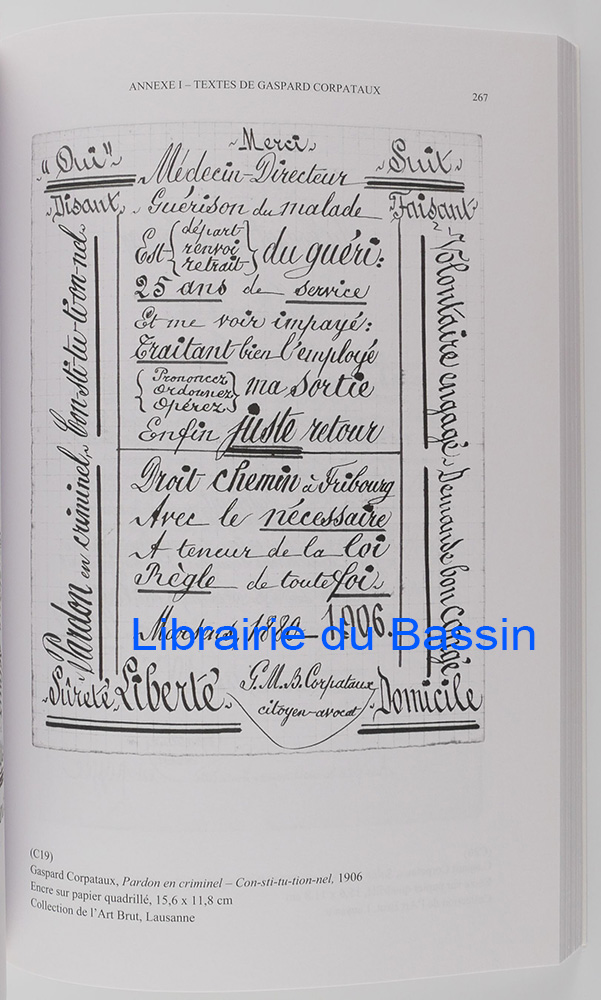 ANNEXE I – TEXTES DE GASPARD CORPATAUX
267
~Merci~
~"Oui"~ Médecin-Directeur ~Suit~
~Disant~ Guérison du malade ~Faisant~
Est {départ renvoi retrait} du guéri:
25 ans de service
Et me voir impayé:
Traitant bien l'employé
{Prononcez Ordonnez Opérez} ma sortie
Enfin juste retour
Droit chemin à Fribourg
Avec le nécessaire
A teneur de la loi
Règle de toute foi~
Marsens 1880–1906.
Pardon en criminel~ Con-sti-tu-ti-on-nel~
~Volontaire engagé~ Demande bon congé~
~Sûreté~ Liberté~
G.M.B. Corpataux
citoyen-avocat
~Domicile~
Librairie du Bassin
(C19)
Gaspard Corpataux, Pardon en criminel – Con-sti-tu-tion-nel, 1906
Encre sur papier quadrillé, 15,6 x 11,8 cm
Collection de l'Art Brut, Lausanne